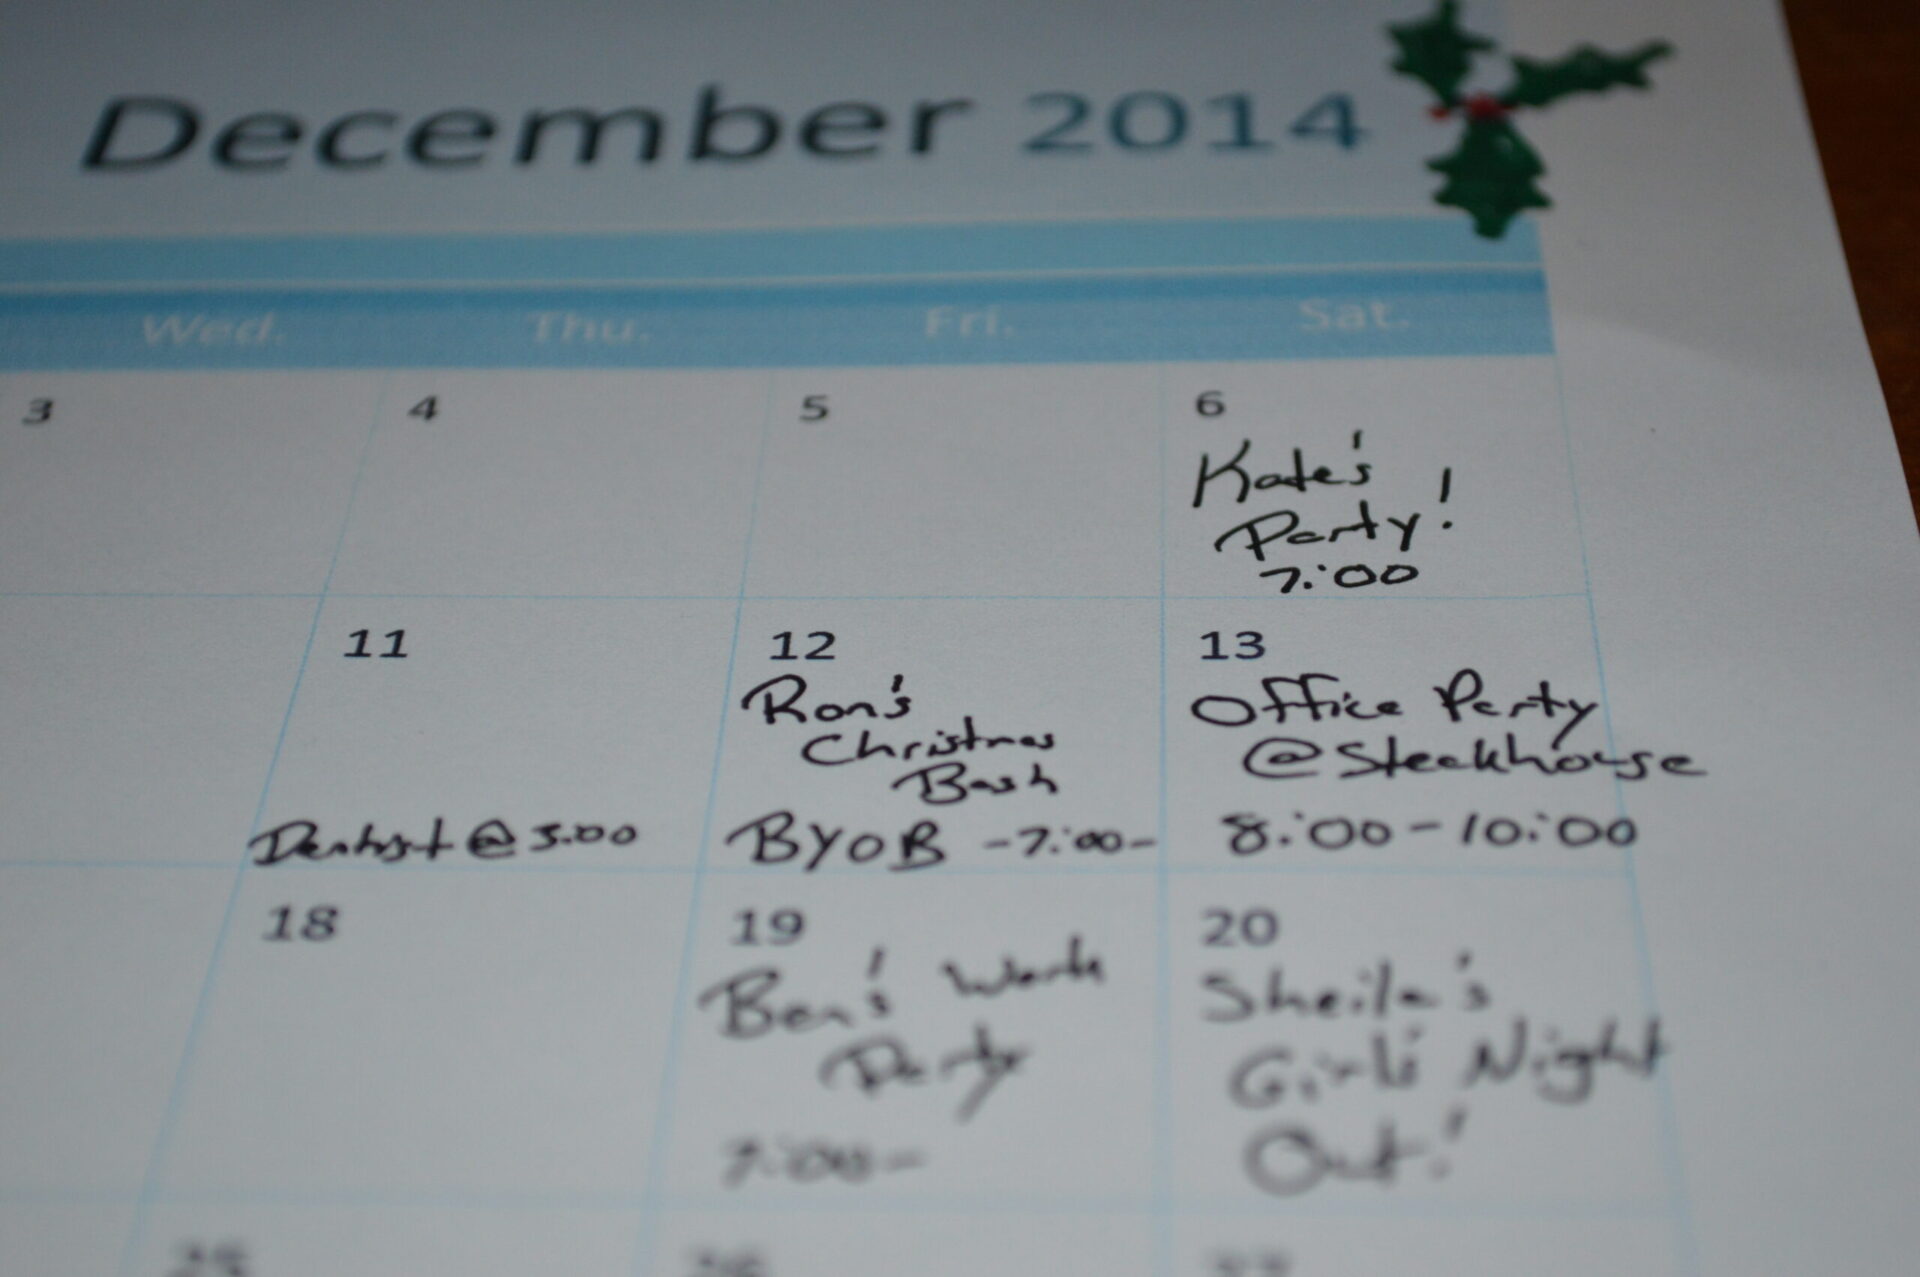 December 2014
Wed. Thu. Fri. Sat.
3 4 5 6
Kate's
Party!
7:00
11 12 13
Ron's
Christmas
Bash
BYOB -7:00-
Office Party
@ Steakhouse
8:00-10:00
Dentist @ 3:00
18 19 20
Ben's Work
Party
7:00-
Sheila's
Girls Night
Out!
25 26 27